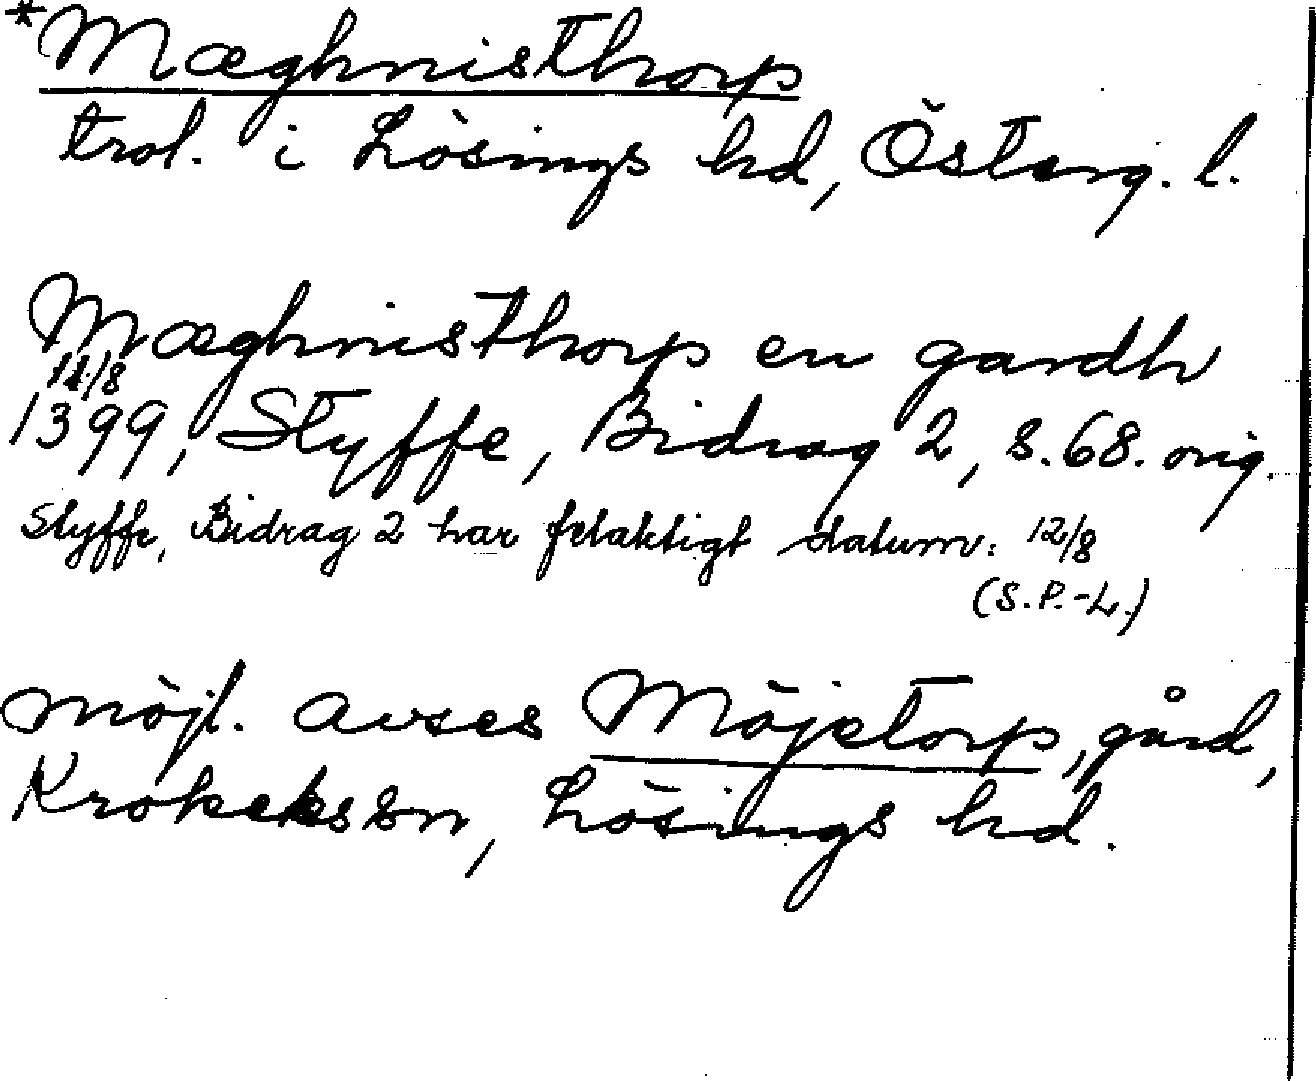 *Mæghnisthorp
trol. i Lösings hd, Österg. l.
Mæghnisthorp en gardh
11/8
1399, Styffe, Bidrag 2, s. 68. orig.
Styffe, Bidrag 2 har felaktigt datum: 12/8
(S.P.-L.)
möjl. avses Möjetorp, gård,
Krokeks sn, Lösings hd.